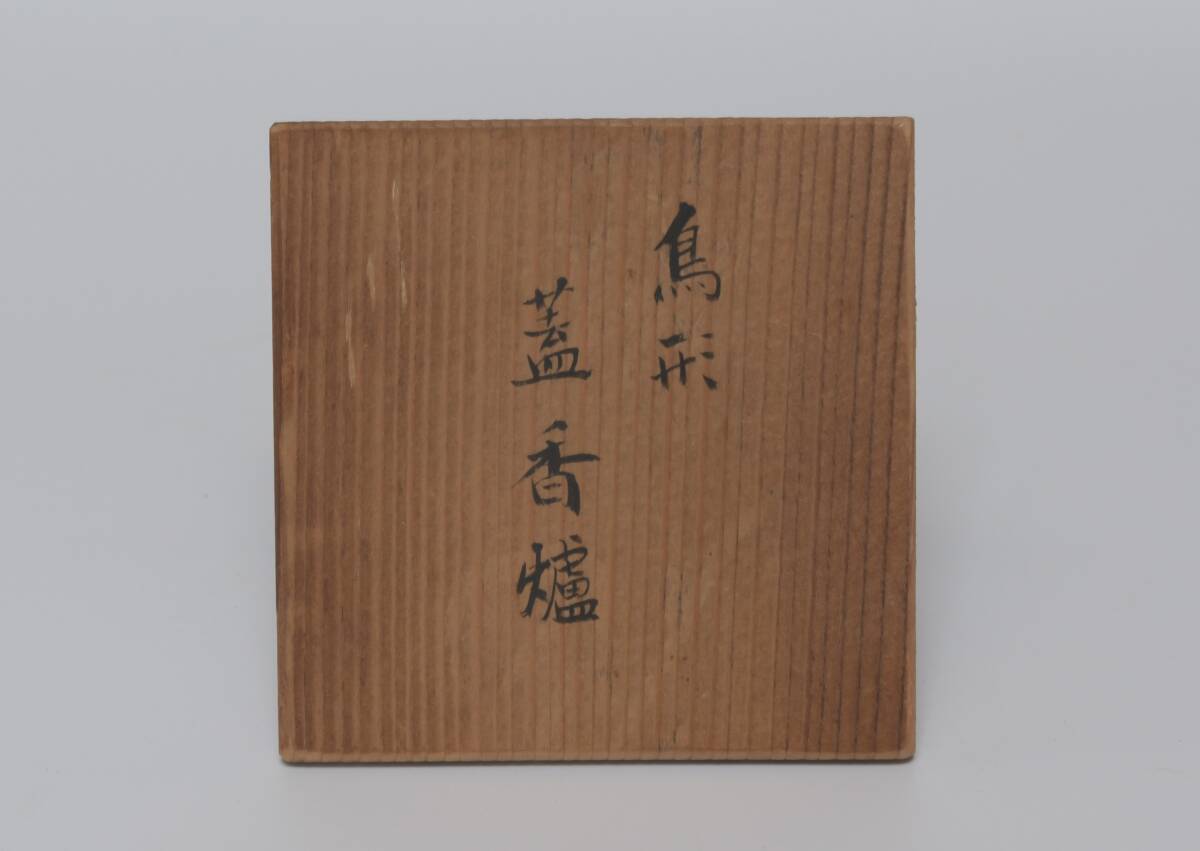 鳥形
蓋香爐